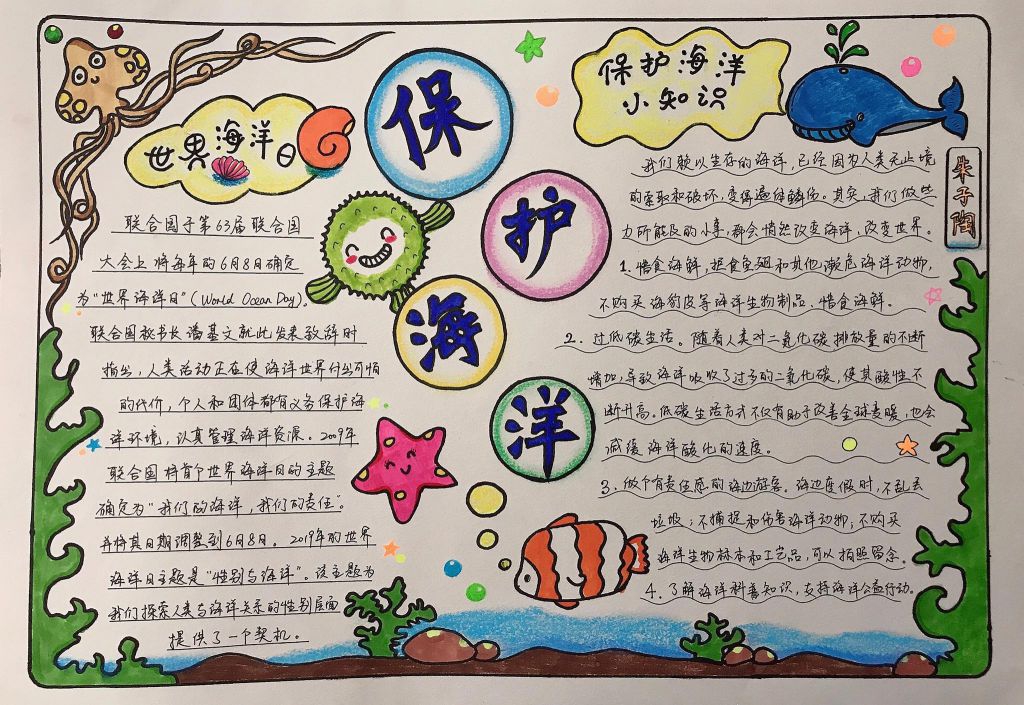 保
护
海
洋
世界海洋日
联合国于第63届联合国
大会上将每年的6月8日确定
为"世界海洋日"(World Ocean Day)。
联合国秘书长潘基文就此发表致辞时
指出,人类活动正在使海洋世界付出可怕
的代价,个人和团体都有义务保护海
洋环境,认真管理海洋资源。2009年
联合国将首个世界海洋日的主题
确定为"我们的海洋,我们的责任"。
并将其日期调整到6月8日。2019年的世界
海洋日主题是"性别与海洋"。该主题为
我们探索人类与海洋关系的性别层面
提供了一个契机。
保护海洋
小知识
朱子陶
我们赖以生存的海洋,已经因为人类无止境
的索取和破坏,变得遍体鳞伤。其实,我们做些
力所能及的小事,都会悄然改变海洋,改变世界。
1.惜食海鲜,拒食鱼翅和其他濒危海洋动物,
不购买海豹皮等海洋生物制品、惜食海鲜。
2.过低碳生活。随着人类对二氧化碳排放量的不断
增加,导致海洋吸收了过多的二氧化碳,使其酸性不
断升高。低碳生活方式不仅有助于改善全球变暖,也会
减缓海洋酸化的速度。
3.做个有责任感的海边游客。海边度假时,不乱丢
垃圾;不捕捉和伤害海洋动物;不购买
海洋生物标本和工艺品,可以拍照留念。
4.了解海洋科普知识,支持海洋公益行动。